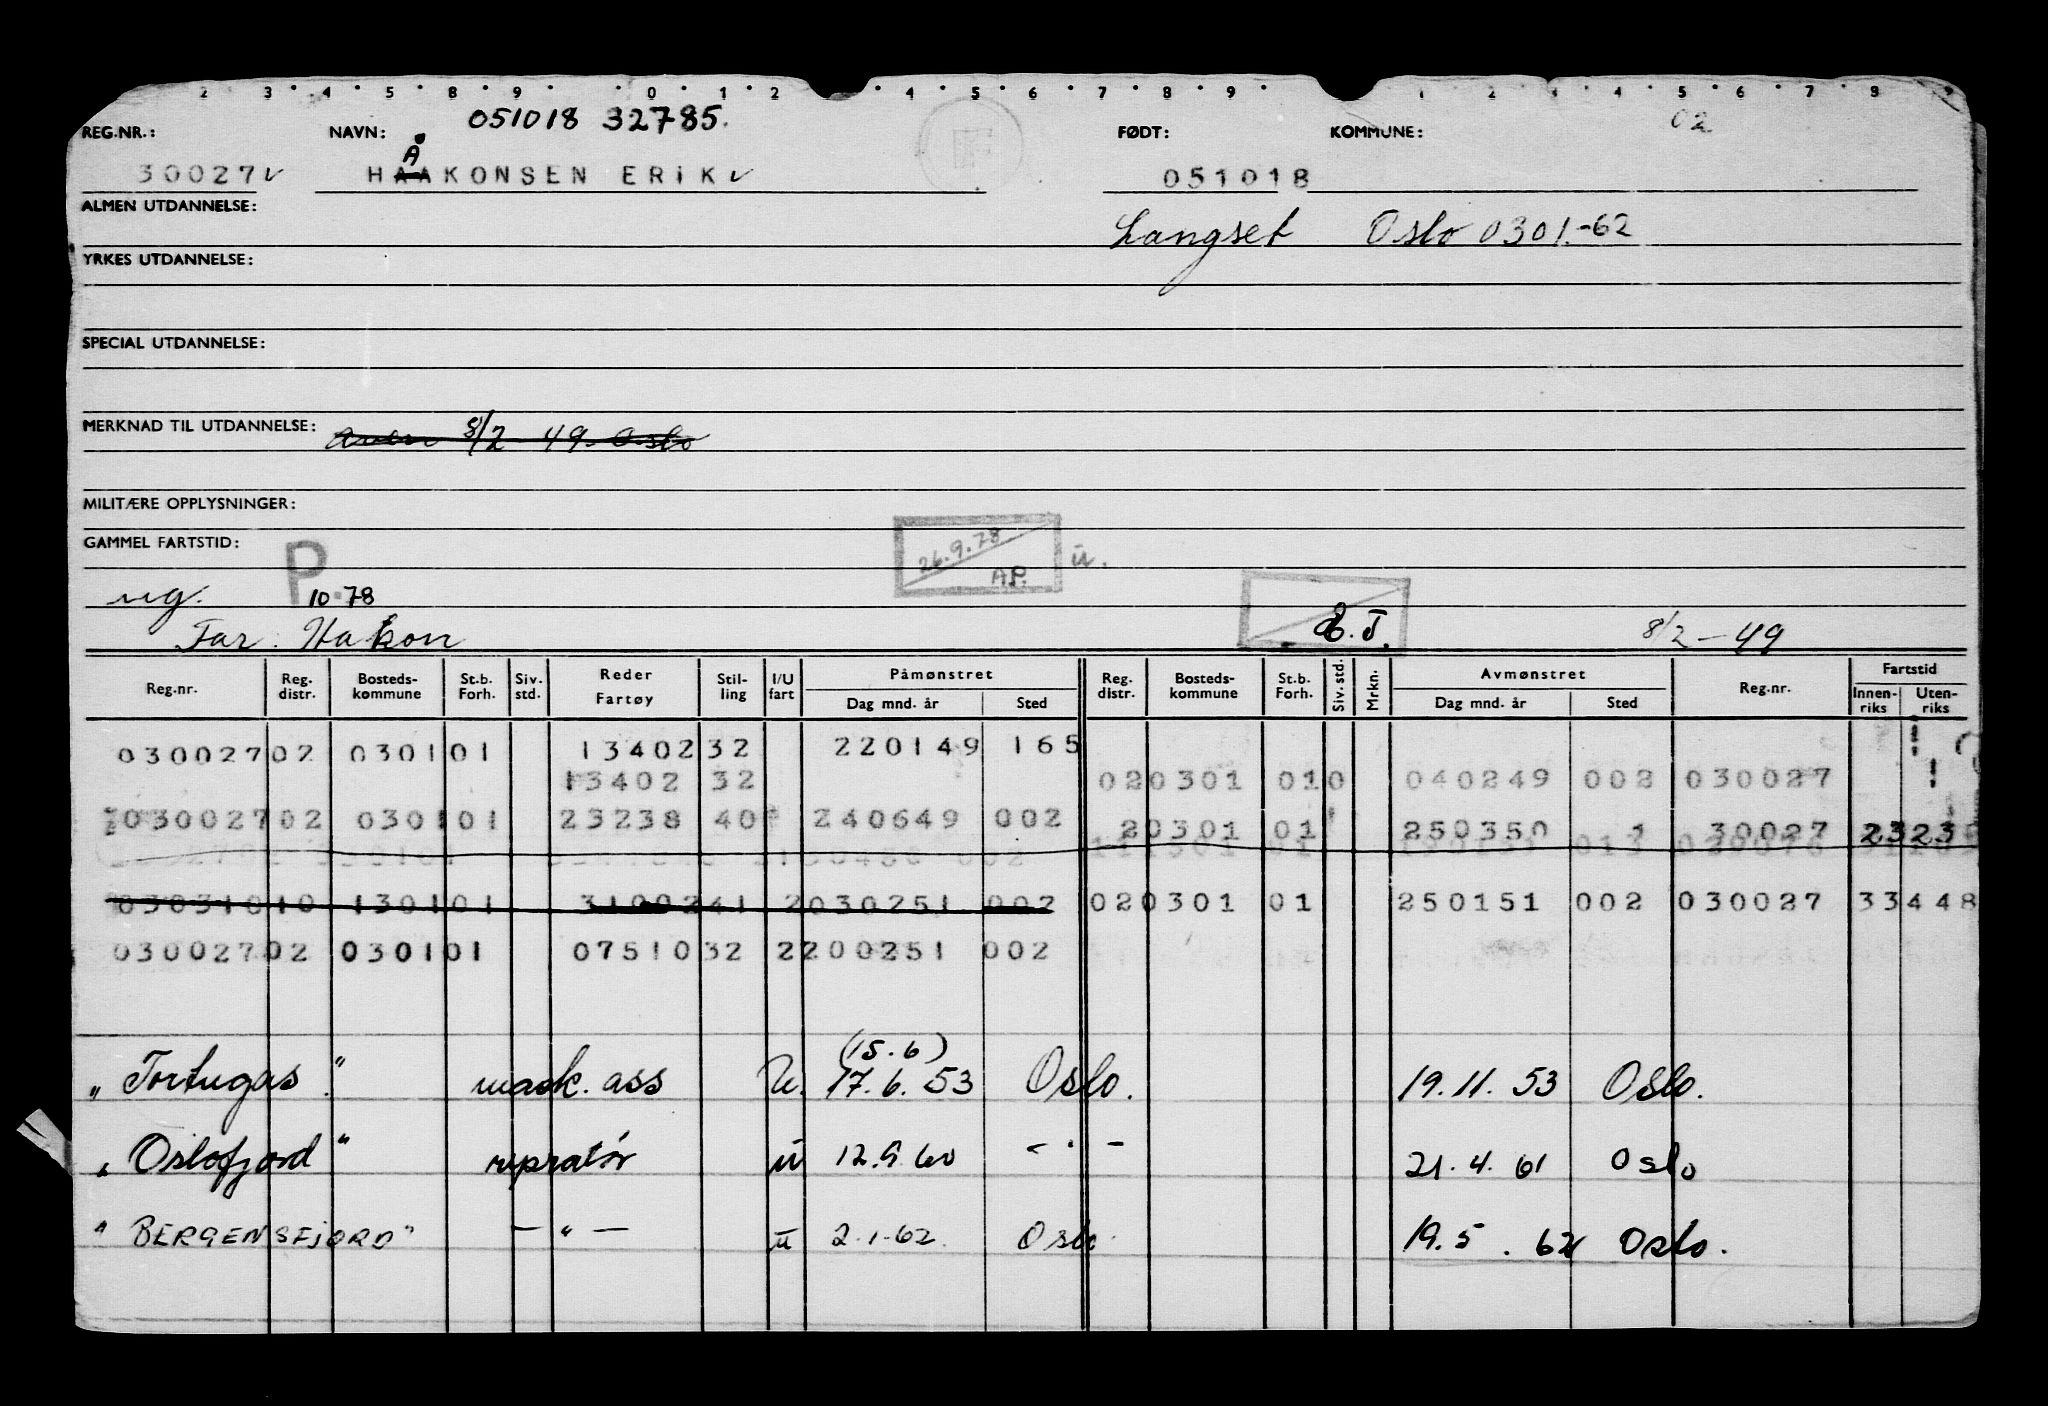 2 3 4 5 8 9 0 1 2 4 5 6 7 8 9 1 2 3 4 5 6 7 8 9
051018 32785.
02
REG.NR.: NAVN: FØDT: KOMMUNE:
Å
30027 HAAKONSEN ERIK 051018
ALMEN UTDANNELSE:
Langset Oslo 0301.-62
YRKES UTDANNELSE:
SPECIAL UTDANNELSE:
MERKNAD TIL UTDANNELSE: 8/2 49 Oslo
MILITÆRE OPPLYSNINGER:
GAMMEL FARTSTID: P 26.9.78 ū.
AP.
ug. 10.78
Far: Hakon E.T. 8/2-49
Reg.nr. Reg. distr. Bosteds-kommune St.b. Forh. Siv. std. Reder Fartøy Stil-ling I/U fart Påmønstret Dag mnd. år Sted Reg. distr. Bosteds-kommune St.b. Forh. Siv. std. Mrkn. Avmønstret Dag mnd. år Sted Reg.nr. Fartstid Innen-riks Uten-riks
030027 02 0301 01 13402 32 220149 165
13402 32 02 0301 010 040249 002 030027
030027 02 0301 01 23238 40 240649 002 2 0301 01 250350 1 30027 23 23
030310 10 1301 01 31002 41 2 030251 002 02 0301 01 250151 002 030027 33 448
030027 02 0301 01 07510 32 2 200251 002
(15.6)
"Tortugas" mask. ass U. 17.6.53 Oslo. 19.11.53 Oslo.
"Oslofjord" repratør ū 12.9.60 - " - 21.4.61 Oslo
"BERGENSFJORD" - " - ū 2.1.62 Oslo 19.5.62 Oslo.